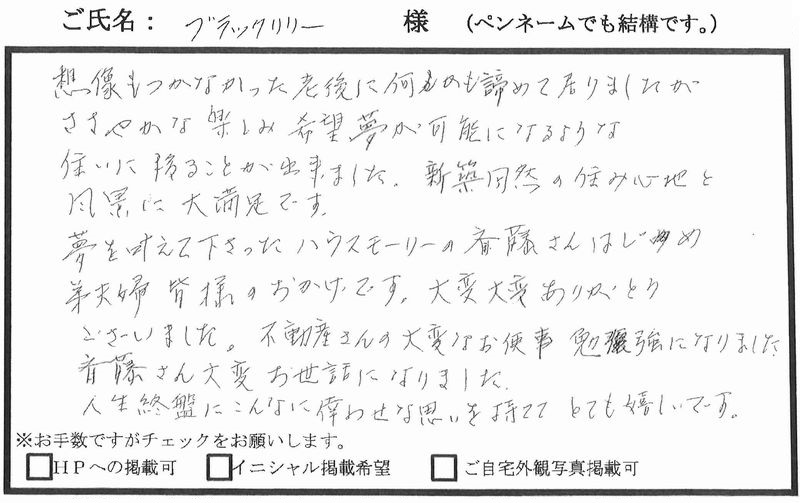 ご氏名： ブラックリリー 様 （ペンネームでも結構です。）
想像もつかなかった老後に何もかも諦めて居りましたが
ささやかな楽しみ希望夢が可能になるような
住いに移ることが出来ました。新築同然の住み心地と
風景に大満足です。
夢を叶えて下さったハウスモーリーの斎藤さんはじめ
弟夫婦皆様のおかげです。大変大変ありがとう
ございました。不動産さんの大変なお仕事勉強になりました
斉藤さん大変お世話になりました。
人生終盤にこんなに倖わせな思いを持てて とても嬉しいです。
※お手数ですがチェックをお願いします。
□ＨＰへの掲載可 □イニシャル掲載希望 □ご自宅外観写真掲載可